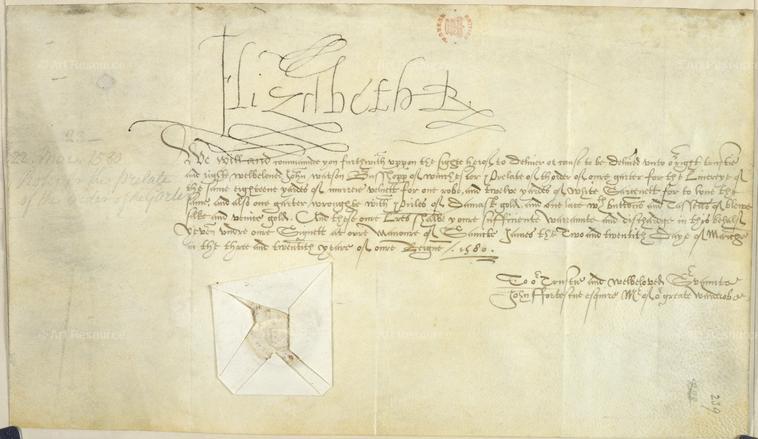 Elizabeth R
We will and commaunde you furthwith uppon the sighte herof to deliver or cause to be delivered unto our right trustie
and right welbeloved John Watson Busshopp of Winchester Prelate of thorder of oure garter for the Liverye of
the same eighteene yardes of murrey velvett for one robe, and twelve yardes of White Sarcenett for to lyne the
same, and also one garter wroughte with Purles of Damask gold and one lace with buttons and Tasselles of blewe
silke and venice gold. And these oure Lres shalbe youre sufficiente warraunte and discharge in this behalf
Yeven undre oure Signett at oure Mannore of Saincte James the Two and twentith Daye of Marche
in the three and twentith yeare of oure Reigne 1580.
To our Trustie and welbeloved Servante
John ffortescue esquire Mr of our great warderobe
22
22. Mar. 1580
Prelate
of the Order of the Garter
239
Art Resource